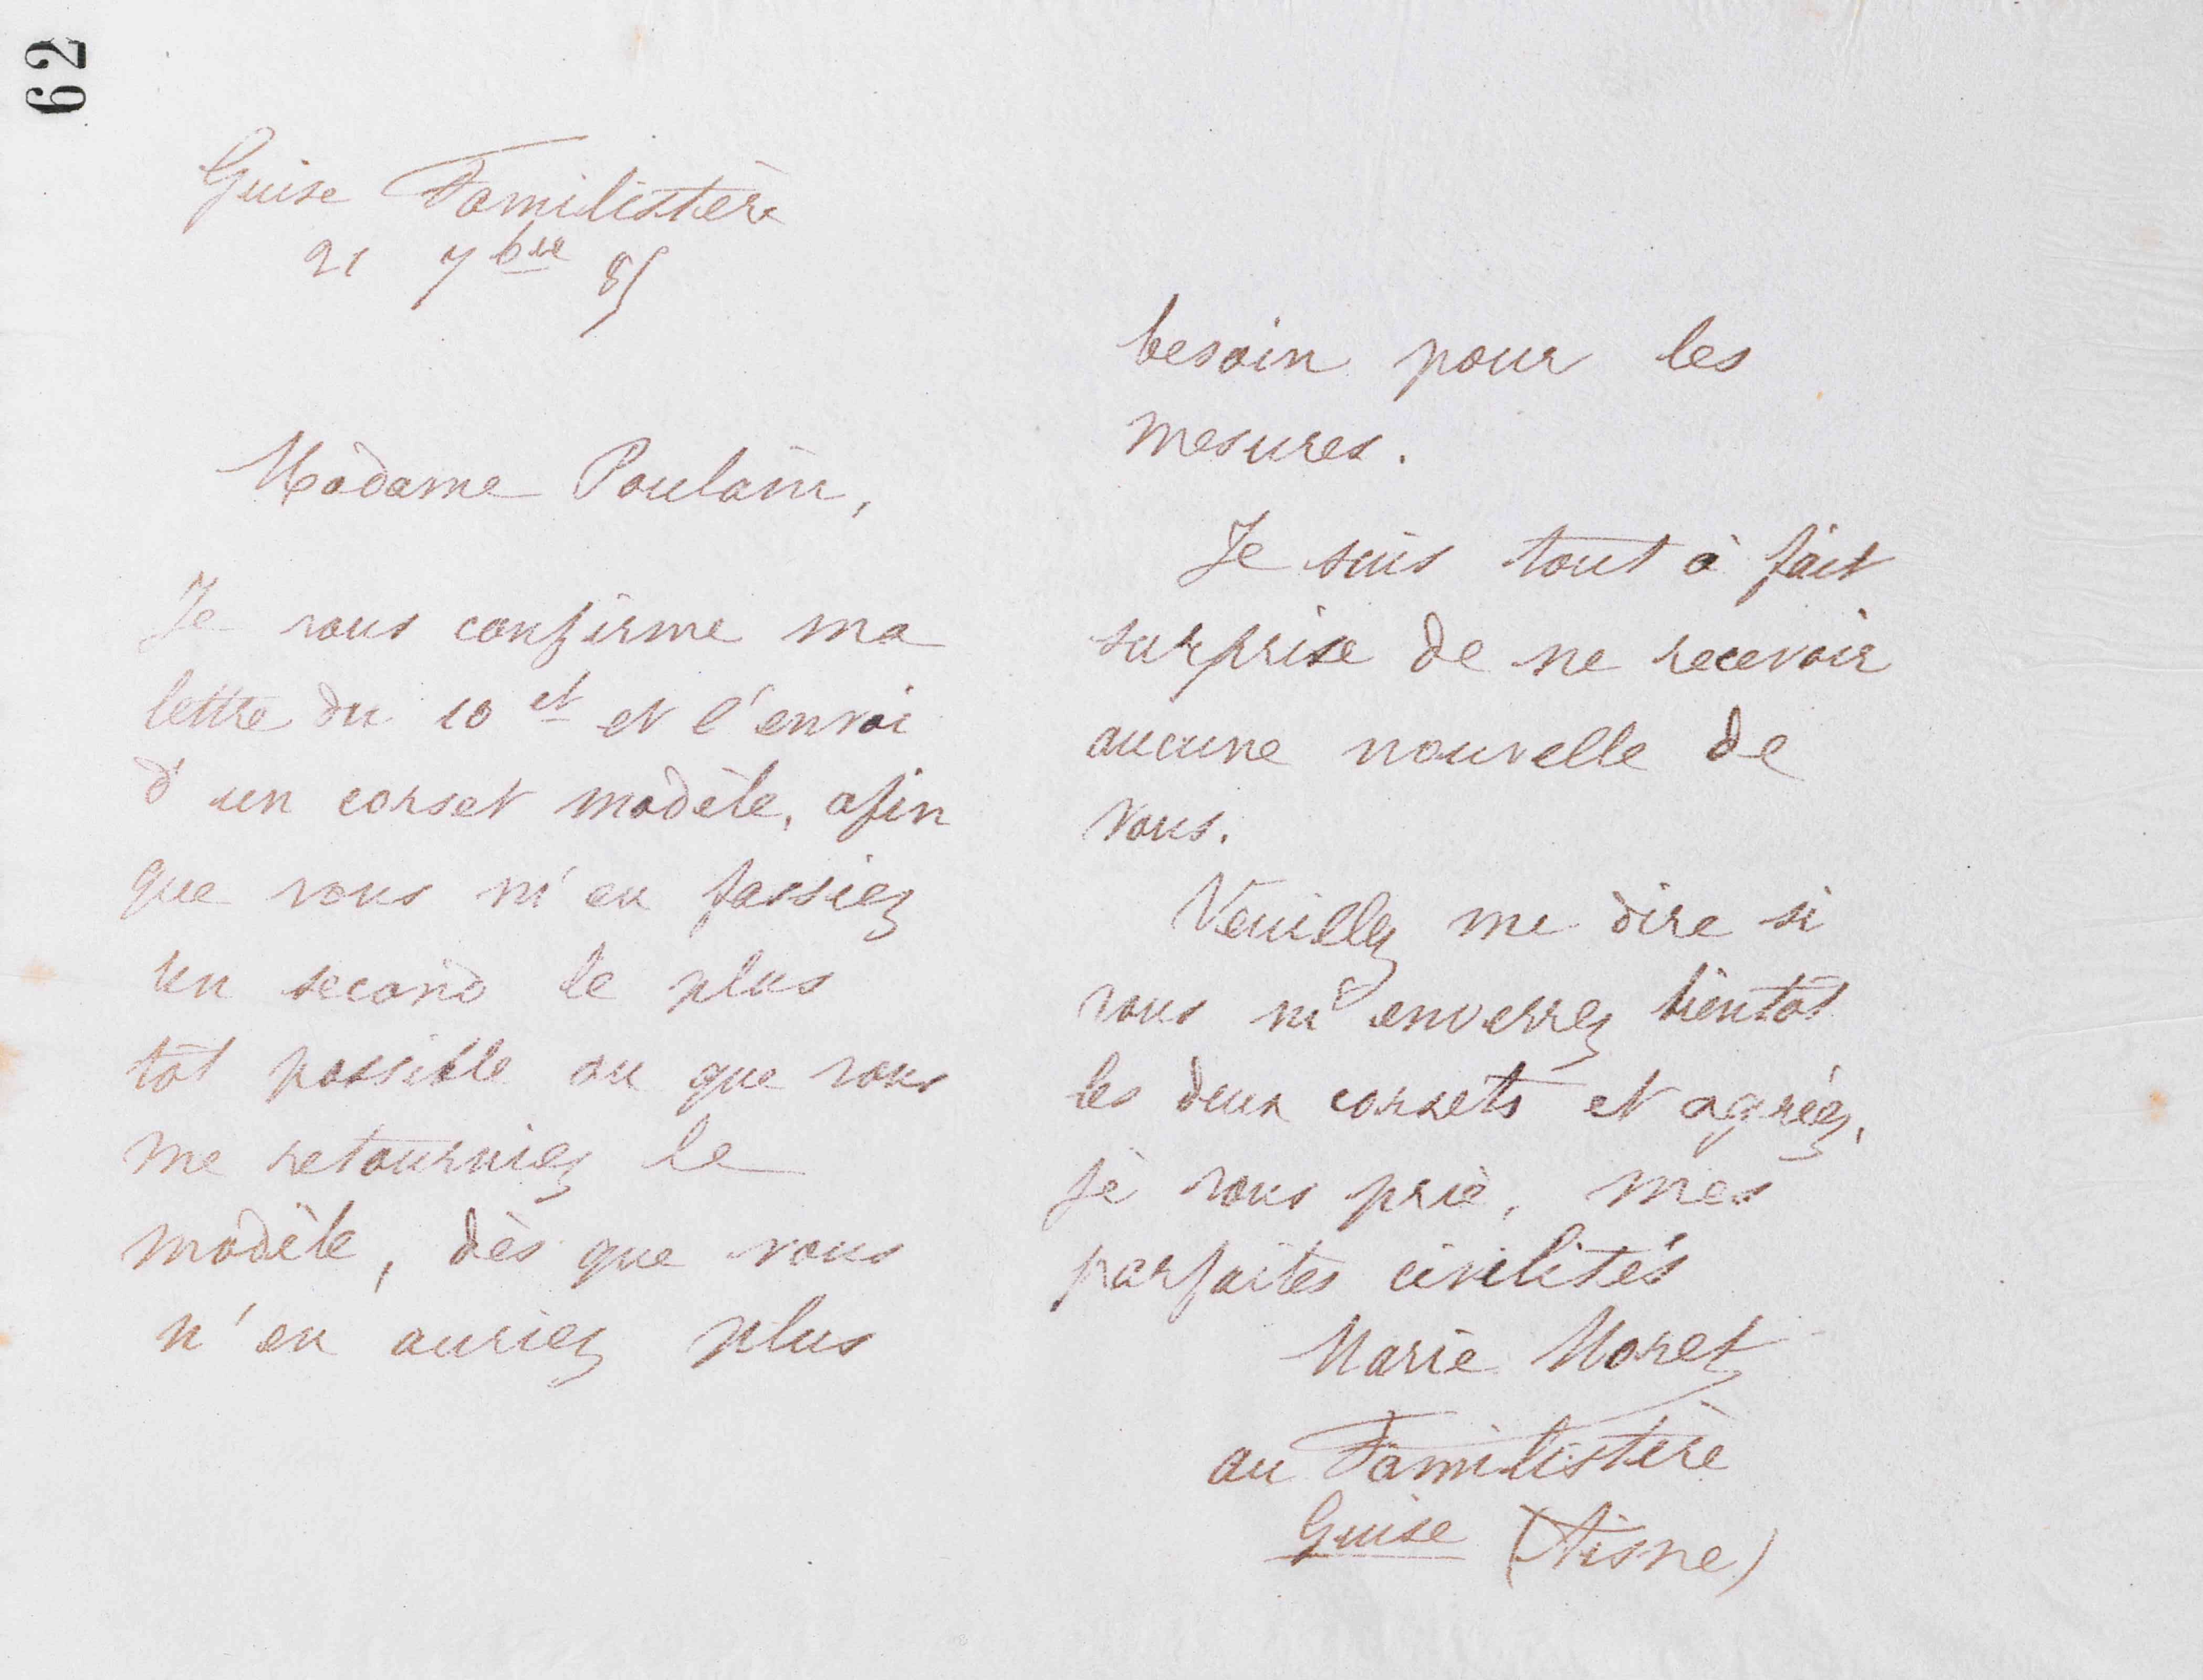 62
Guise Familistère
21 7bre 85
Madame Poulain,
Je vous confirme ma
lettre du 10 ct et l'envoi
d'un corset modèle, afin
que vous m'en fassiez
un second le plus
tôt possible ou que vous
me retourniez le
modèle, dès que vous
n'en auriez plus
besoin pour les
mesures.
Je suis tout à fait
surprise de ne recevoir
aucune nouvelle de
vous.
Veuillez me dire si
vous m'enverrez bientôt
les deux corsets et agréez,
je vous prie, mes
parfaites civilités
Marie Moret
au Familistère
Guise (Aisne)